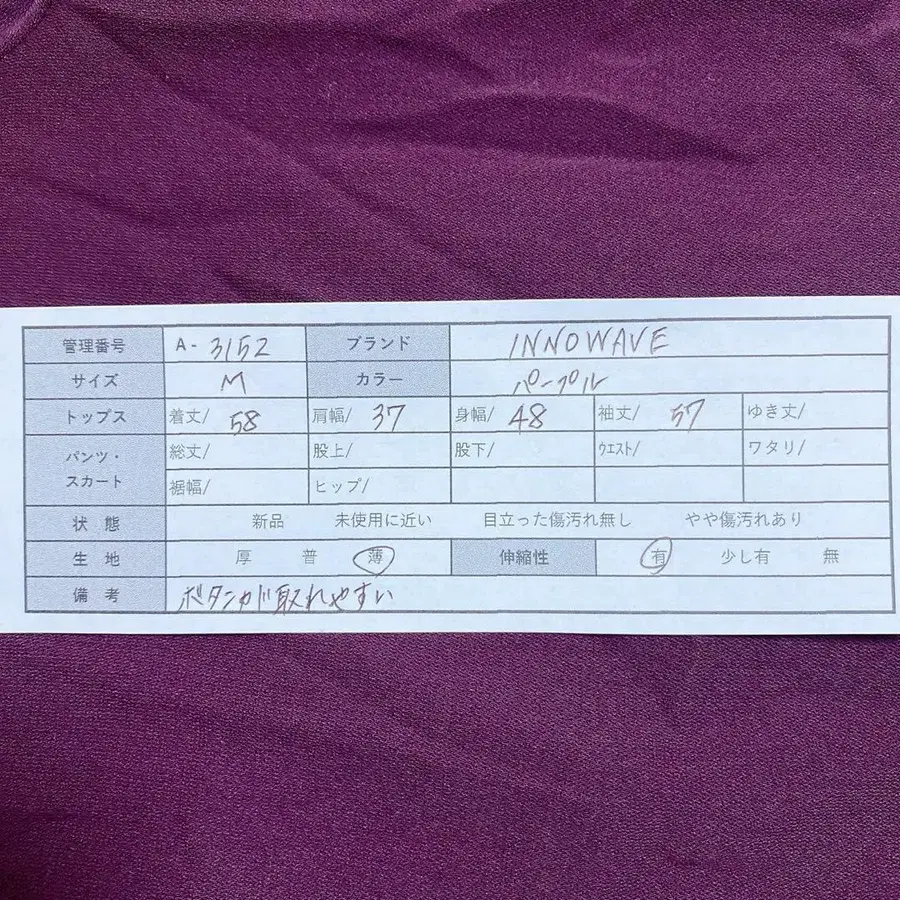 管理番号 A- 3152 ブランド INNOWAVE
サイズ M カラー パープル
トップス 着丈/ 58 肩幅/ 37 身幅/ 48 袖丈/ 57 ゆき丈/
パンツ・スカート 総丈/ 股上/ 股下/ ウエスト/ ワタリ/
裾幅/ ヒップ/
状態 新品 未使用に近い 目立った傷汚れ無し やや傷汚れあり
生地 厚 普 薄 伸縮性 有 少し有 無
備考 ボタンが取れやすい